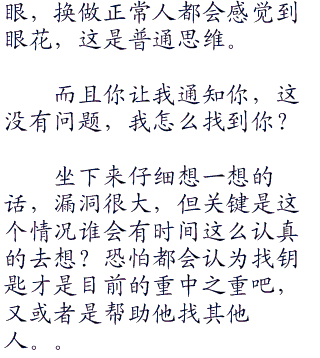 眼，换做正常人都会感觉到
眼花，这是普通思维。
而且你让我通知你，这
没有问题，我怎么找到你？
坐下来仔细想一想的
话，漏洞很大，但关键是这
个情况谁会有时间这么认真
的去想？恐怕都会认为找钥
匙才是目前的重中之重吧，
又或者是帮助他找其他
人。。